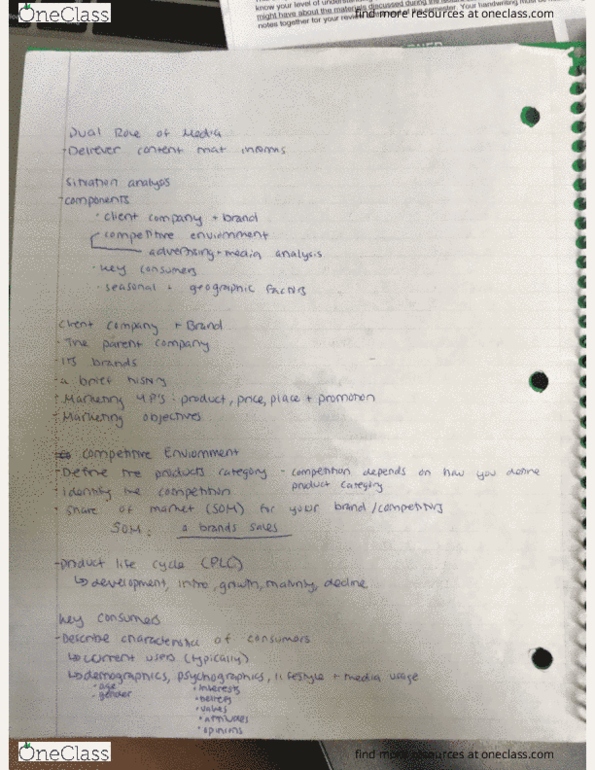 OneClass
find more resources at oneclass.com
know your level of
might have about the materials discussed during the
notes together for your
Your handwriting must
Dual Role of Media
- Deliever content that informs
Situation analysis
- components
· client company + brand
· competitive enviornment
advertising + media analysis
· Key consumers
· seasonal + geographic factors
Client company + Brand
- The parent company
- Its brands
- a brief history
- Marketing 4P's : product, price, place + promotion
- Marketing objectives
Competitive Enviornment
- Define the products category - competition depends on how you define
product category
- Identify the competition
- Share of market (SOM) for your brand/competitors
SOM: a brands sales
- product life cycle (PLC)
↳ development, intro, growth, maturity, decline
Key consumers
- Describe characteristics of consumers
↳ current users (typically)
↳ demographics, psychographics, lifestyle + media usage
· age · interests
· gender · beliefs
· values
· attitudes
· opinions
OneClass
find more resources at oneclass.com